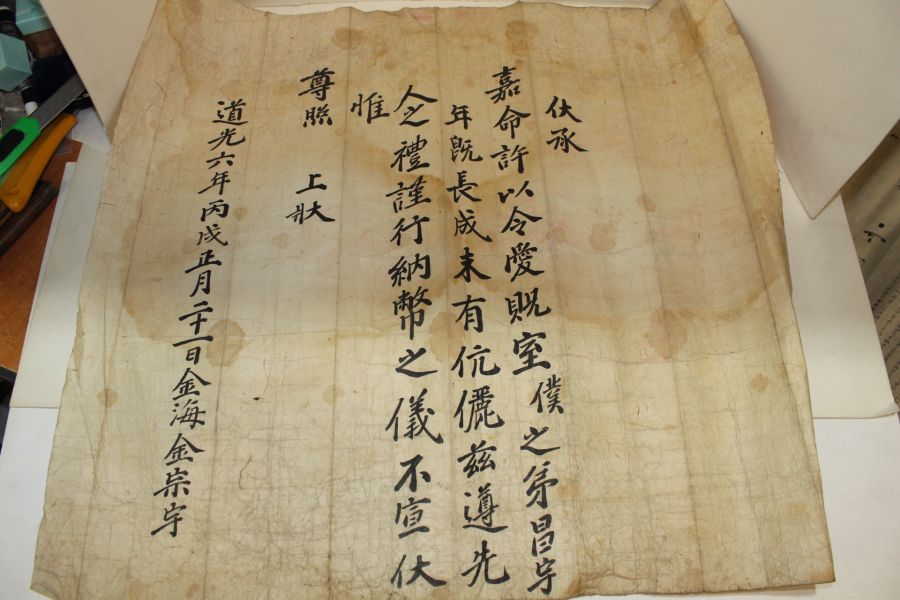 伏承
嘉命許以令愛貺室僕之弟昌宇
年旣長成未有伉儷兹遵先
人之禮謹行納幣之儀不宣伏
惟
尊照 上狀
道光六年丙戌正月二十一日金海金宗宇